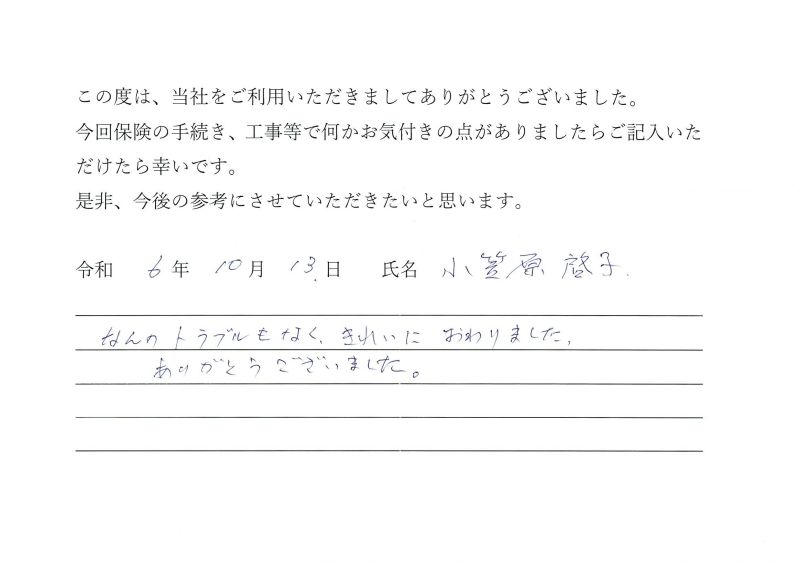 この度は、当社をご利用いただきましてありがとうございました。
今回保険の手続き、工事等で何かお気付きの点がありましたらご記入いた
だけたら幸いです。
是非、今後の参考にさせていただきたいと思います。
令和 6 年 10 月 13 日 氏名 小笠原 啓子
なんのトラブルもなく、きれいに おわりました。
ありがとうございました。